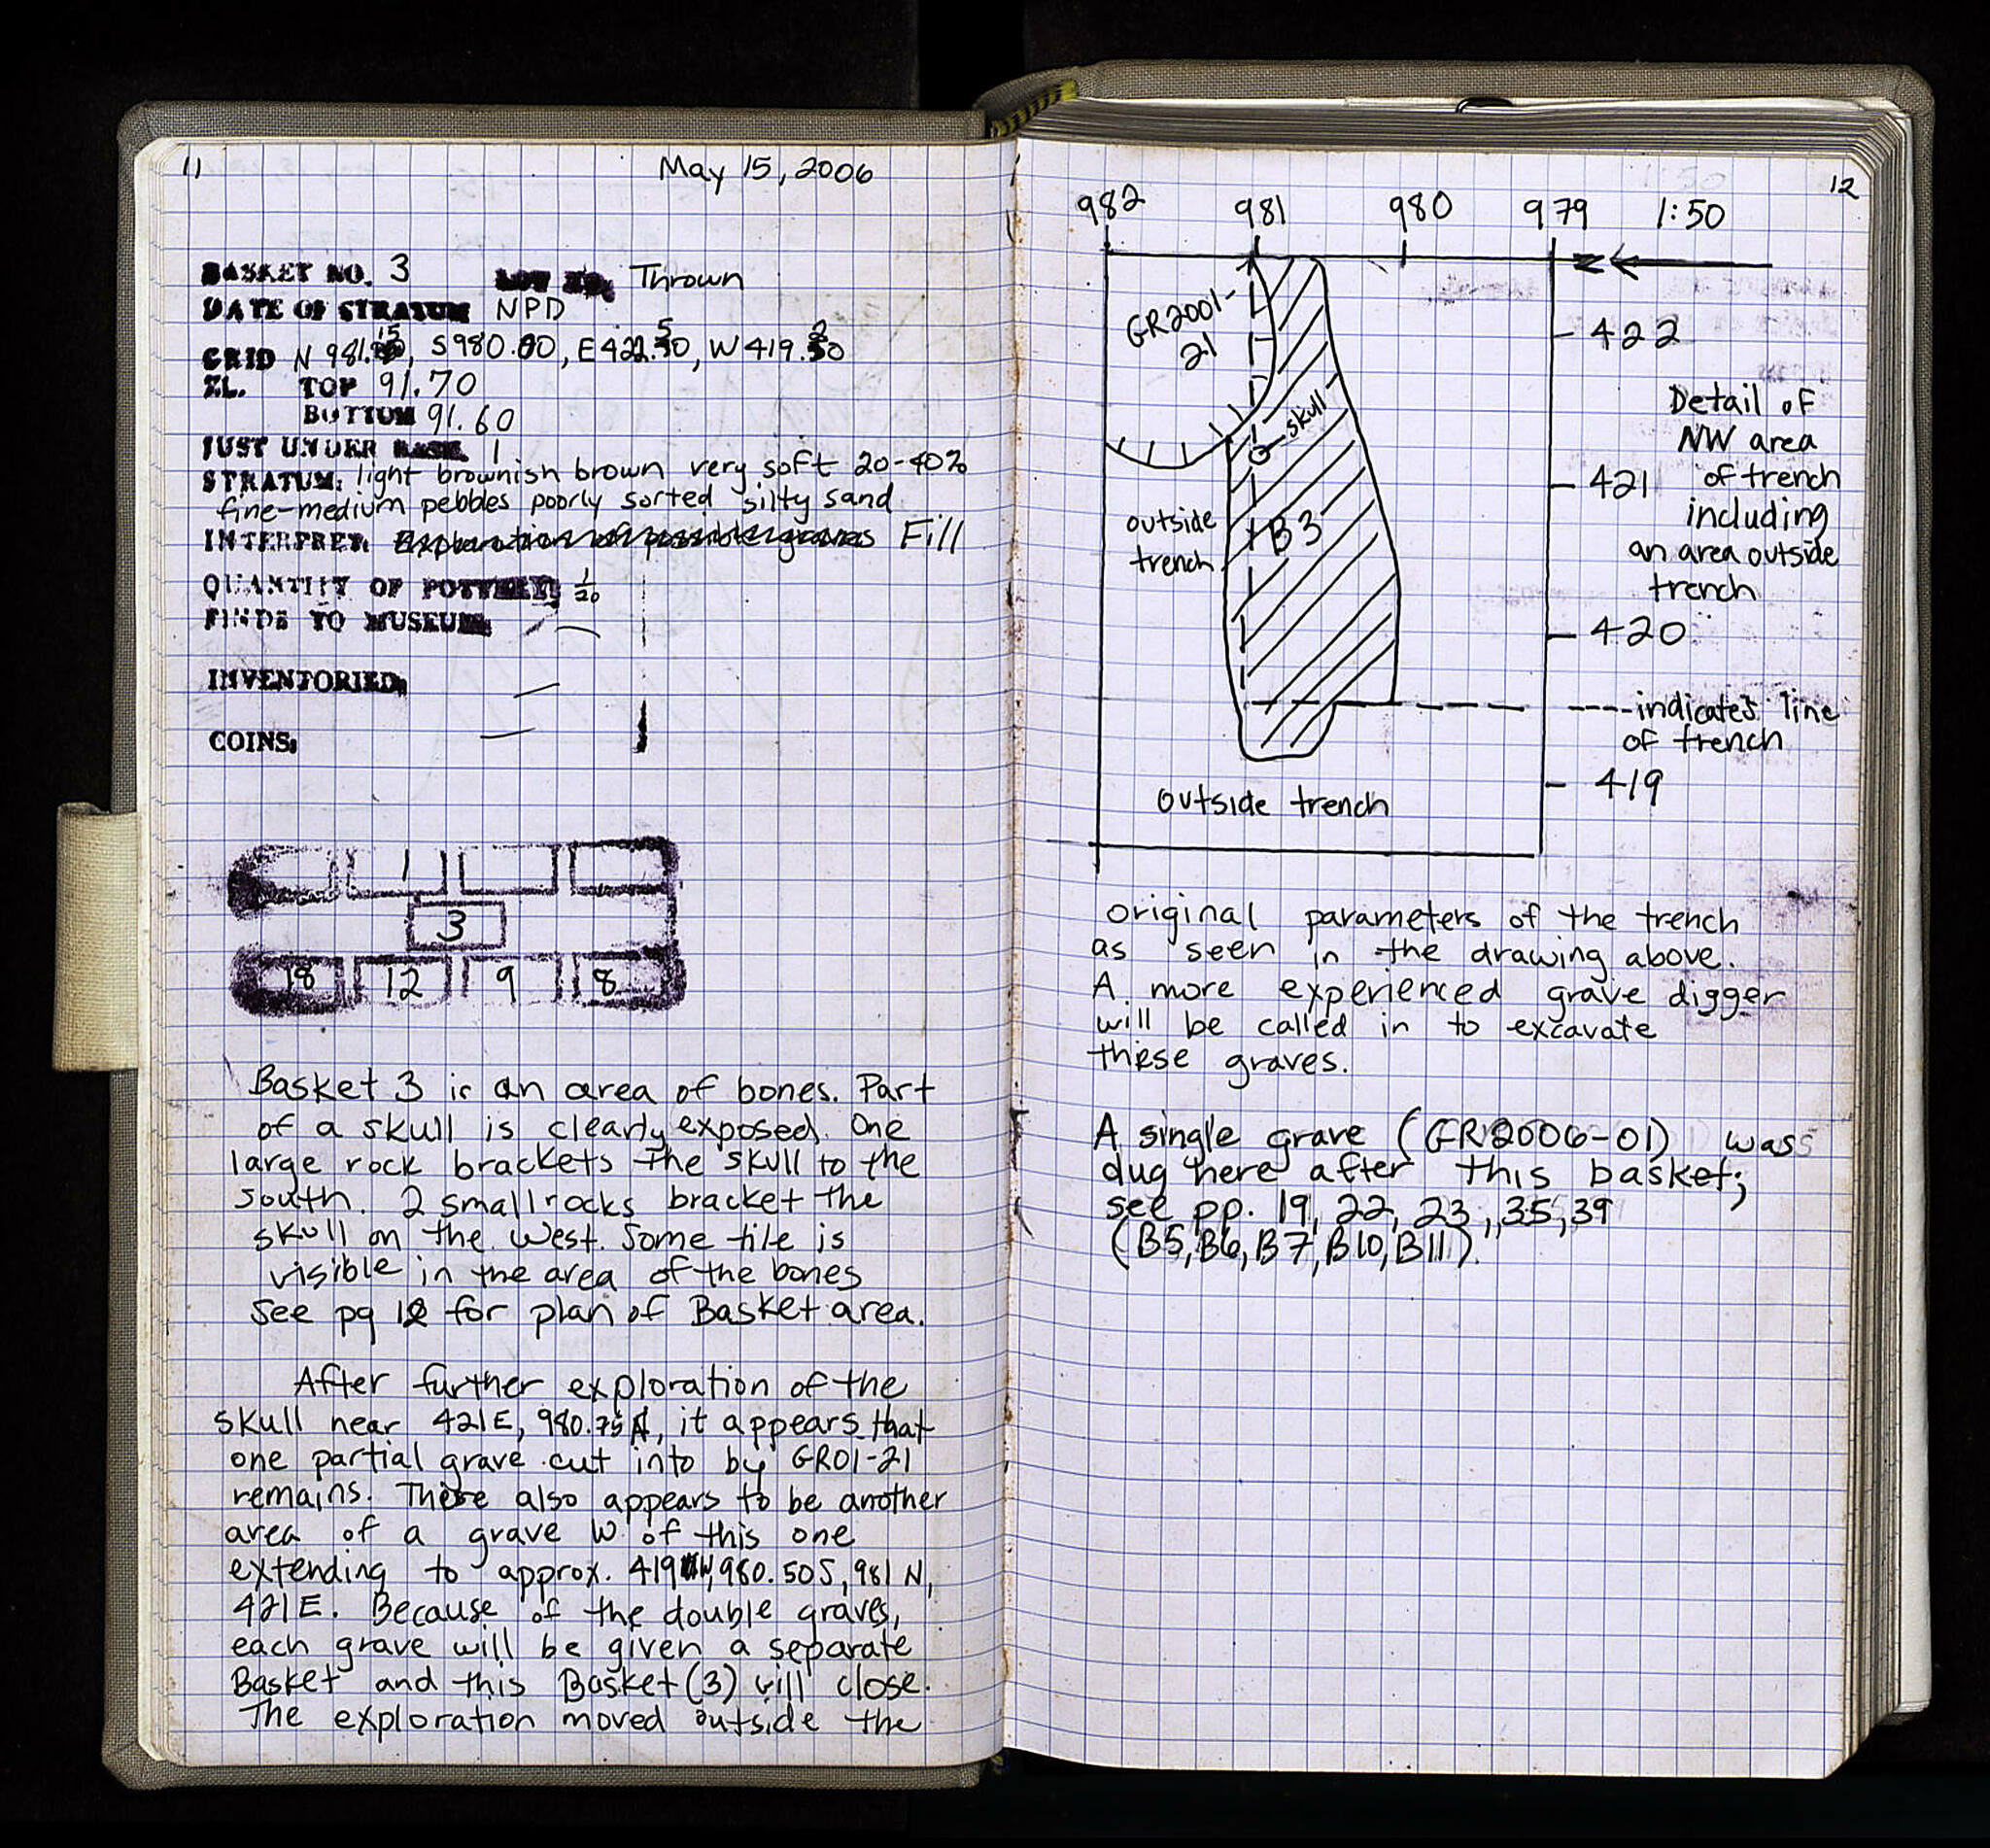 11
May 15, 2006
BASKET NO. 3 LOT NO. Thrown
DATE OF STRATUM NPD
GRID N 981.15, S980.00, E422.50, W419.20
EL. TOP 91.70
BOTTOM 91.60
JUST UNDER BASK. 1
STRATUM: light brownish brown very soft 20-40%
fine-medium pebbles poorly sorted silty sand
INTERPRET. Exploration of possible graves Fill
QUANTITY OF POTTERY: 1/20
FINDS TO MUSEUM: —
INVENTORIED: —
COINS: —
1
3
18 12 9 8
Basket 3 is an area of bones. Part
of a skull is clearly exposed. One
large rock brackets the skull to the
south. 2 small rocks bracket the
skull on the west. Some tile is
visible in the area of the bones
See pg 12 for plan of Basket area.
After further exploration of the
skull near 421E, 980.75 N, it appears that
one partial grave cut into by GR01-21
remains. There also appears to be another
area of a grave W of this one
extending to approx. 419 W, 980.50S, 981 N,
421E. Because of the double graves,
each grave will be given a separate
Basket and this Basket (3) will close.
The exploration moved outside the
12
982 981 980 979 1:50
N
GR2001-
21
422
skull
Detail of
NW area
of trench
including
an area outside
trench
421
outside
trench
B3
420
----indicates line
of trench
419
outside trench
original parameters of the trench
as seen in the drawing above.
A more experienced grave digger
will be called in to excavate
these graves.
A single grave (GR2006-01) was
dug here after this basket;
see pp. 19, 22, 23, 35, 39
(B5, B6, B7, B10, B11).